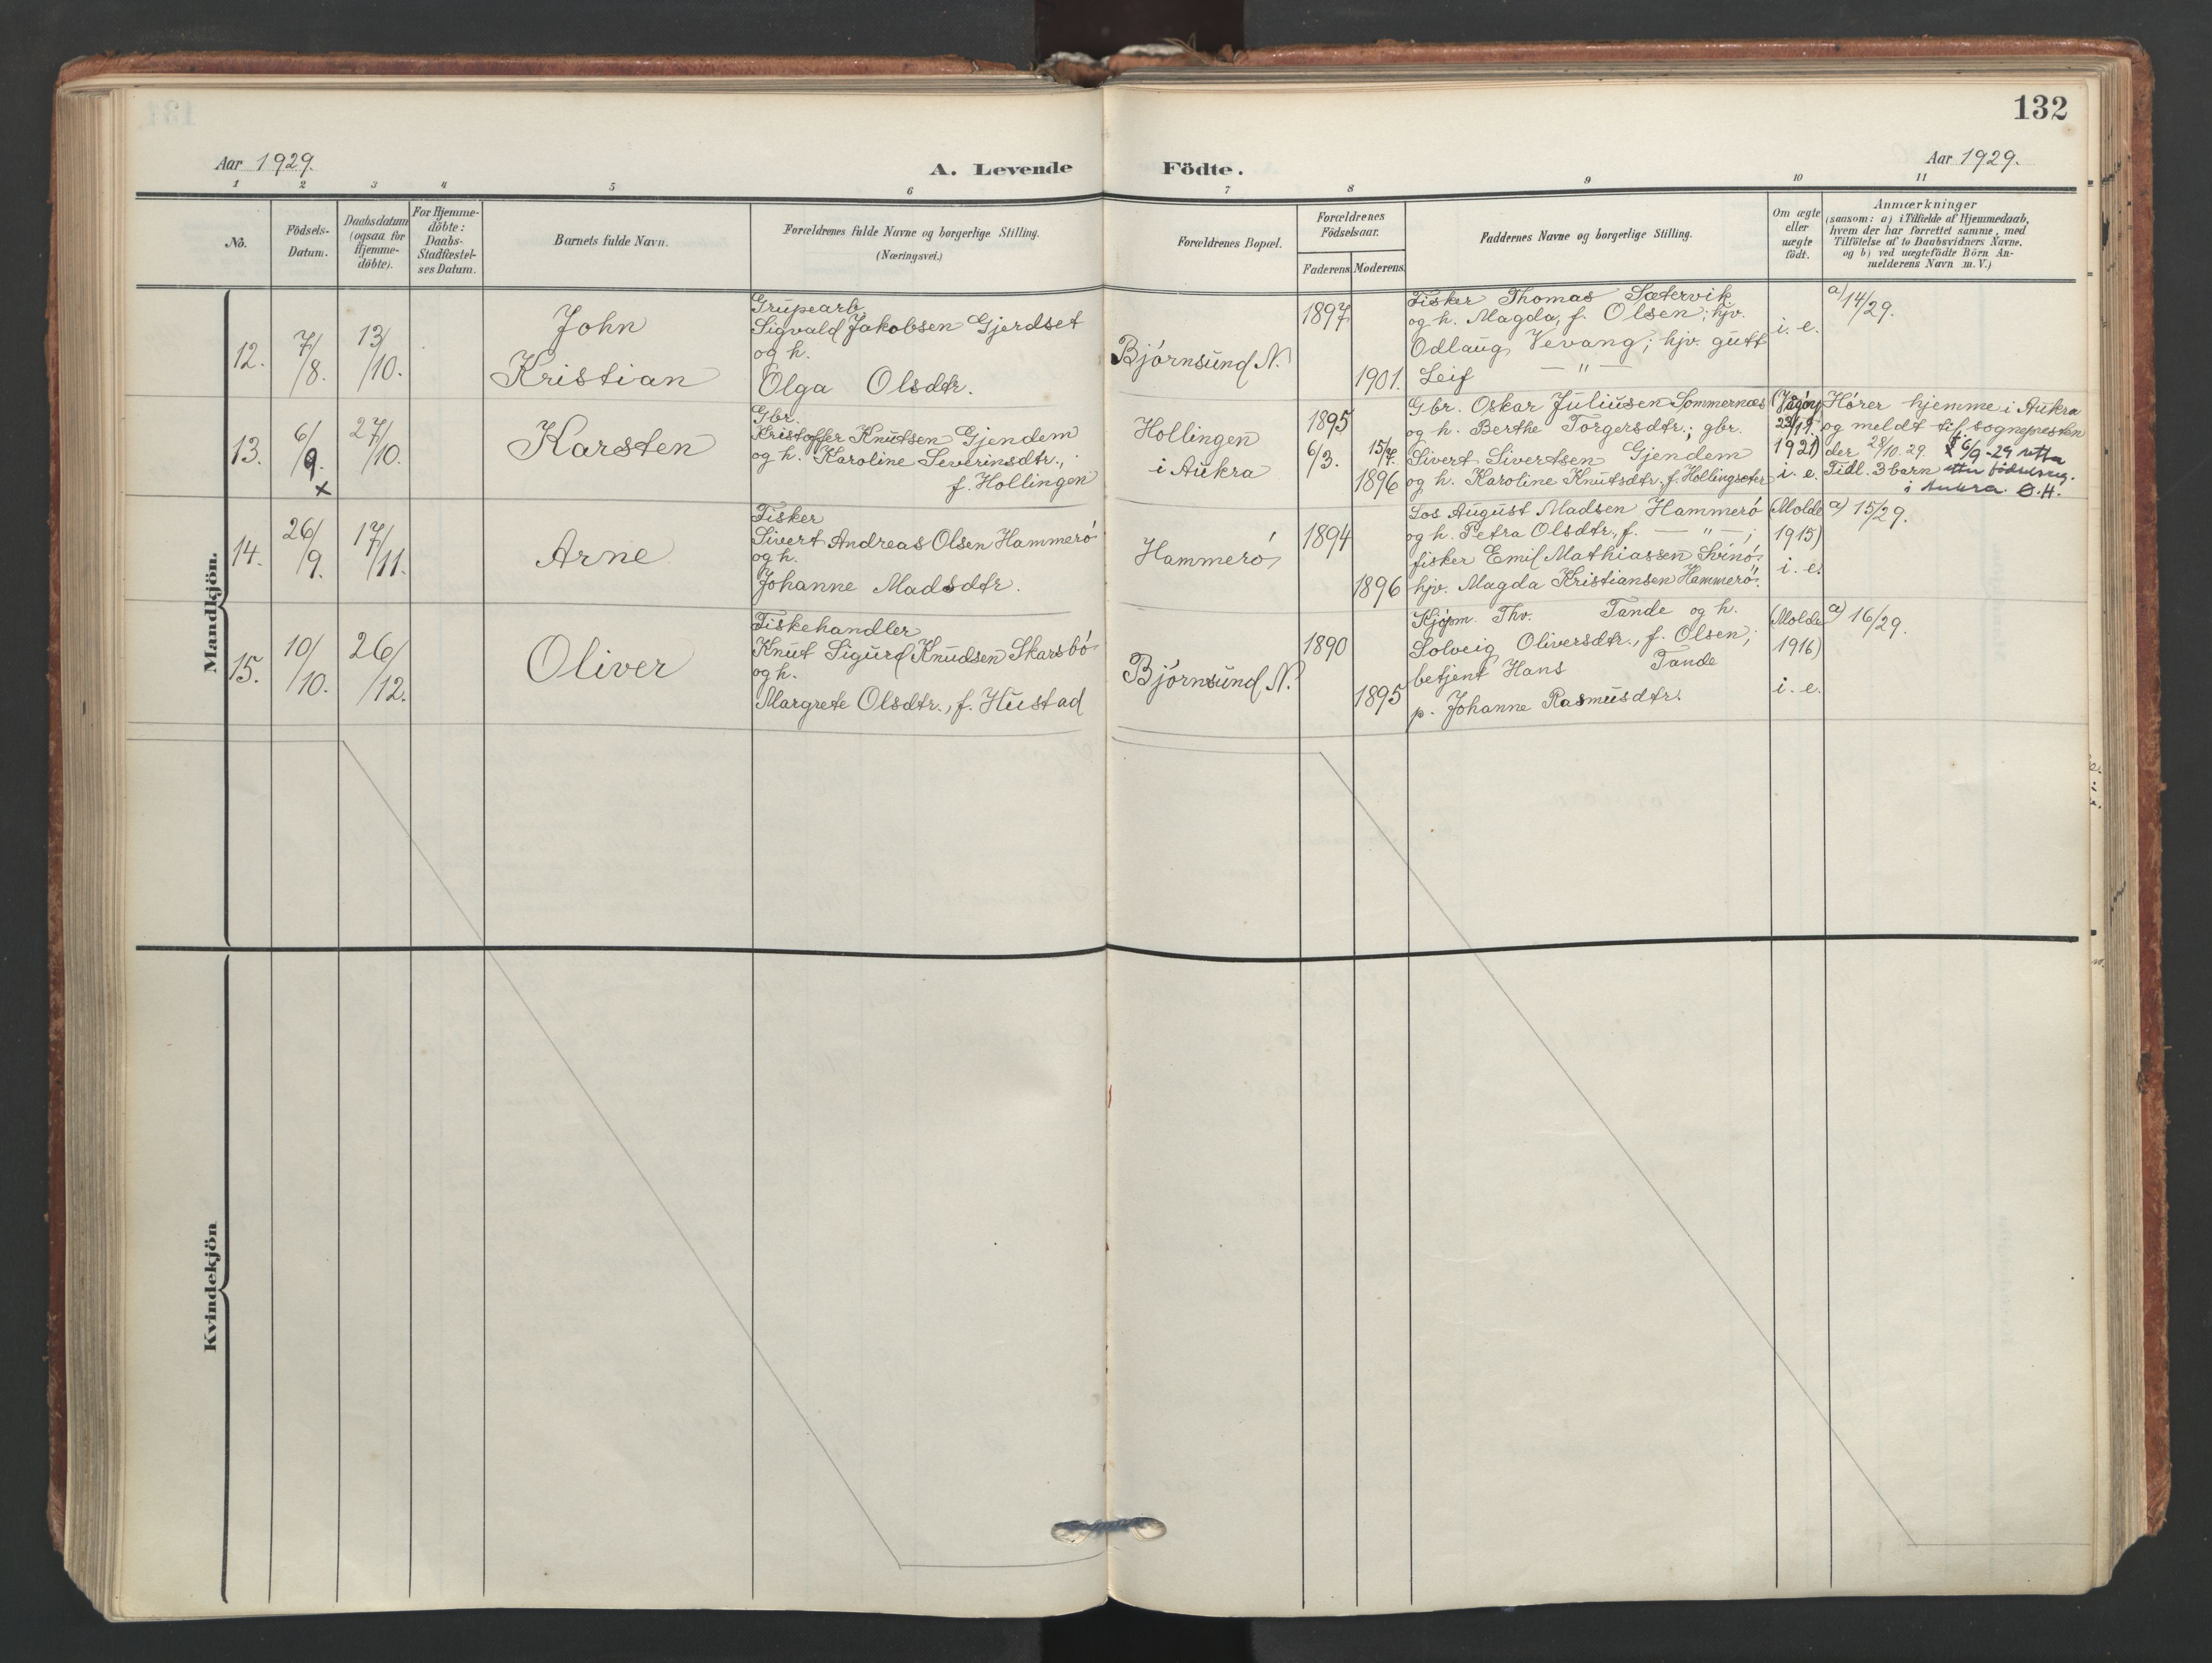 132
Aar 1929.
A. Levende Födte.
Aar 1929.
1 2 3 4 5 6 7 8 9 10 11
No.
Födsels-
Datum.
Daabsdatum
(ogsaa for
Hjemme-
döbte).
For Hjemme-
döbte:
Daabs-
Stadfæstel-
ses Datum.
Barnets fulde Navn.
Forældrenes fulde Navne og borgerlige Stilling.
(Næringsvei.)
Forældrenes Bopæl.
Forældrenes
Födselsaar.
Faderens Moderens
Faddernes Navne og borgerlige Stilling.
Om ægte
eller
uægte
födt.
Anmærkninger
(saasom: a) i Tilfælde af Hjemmedaab,
hvem der har forrettet samme, med
Tilföielse af to Daabsvidners Navne.
og b) ved uægtefödte Börn An-
melderens Navn m. V.)
Mandkjön.
12.
7/8.
13/10.
John
Kristian
Grupearb.
Sigvald Jakobsen Gjerdset
og h.
Olga Olsdtr.
Bjørnsund N.
1897
1901.
Fisker Thomas Sætervik
og h. Magda, f. Olsen; hjv.
Odlaug Vevang; hjv. gutt
Leif — " —
i. e.
a) 14/29.
13.
6/9.
x
27/10.
Karsten
Gbr.
Kristoffer Knutsen Gjendem
og h. Karoline Severinsdtr.,
f. Hollingen
Hollingen
i Aukra
1895
6/3.
15/7.
1896
Gbr. Oskar Juliusen Sommernæs
og h. Berthe Torgersdtr.; gbr.
Sivert Sivertsen Gjendem
og h. Karoline Knutsdtr. f. Hollingseter
1921)
i. e.
Hører hjemme i Aukra
og meldt til sognepresten
der 28/10. 29. x 6/9-29 retta
Tidl. 3 barn etter fødselsreg.
i Aukra. O.H.
14.
26/9.
17/11.
Arne
Fisker
Sivert Andreas Olsen Hammerø
og h.
Johanne Madsdtr.
Hammerø
1894
1896
Los August Madsen Hammerø
og h. Petra Olsdtr., f. — " —;
fisker Emil Mathiassen Svinø.
hjv. Magda Kristiansen Hammerø.
(Molde
1915)
i. e.
a) 15/29.
15.
10/10.
26/12.
Oliver
Fiskehandler
Knut Sigurd Knudsen Skarsbø
og h.
Margrete Olsdtr., f. Hustad
Bjørnsund N.
1890
1895
Kjøpm. Thv. Tande og h.
Solveig Oliversdtr., f. Olsen;
betjent Hans Tande
p. Johanne Rasmusdtr.
(Molde
1916)
i. e.
a) 16/29.
Kvindekjön